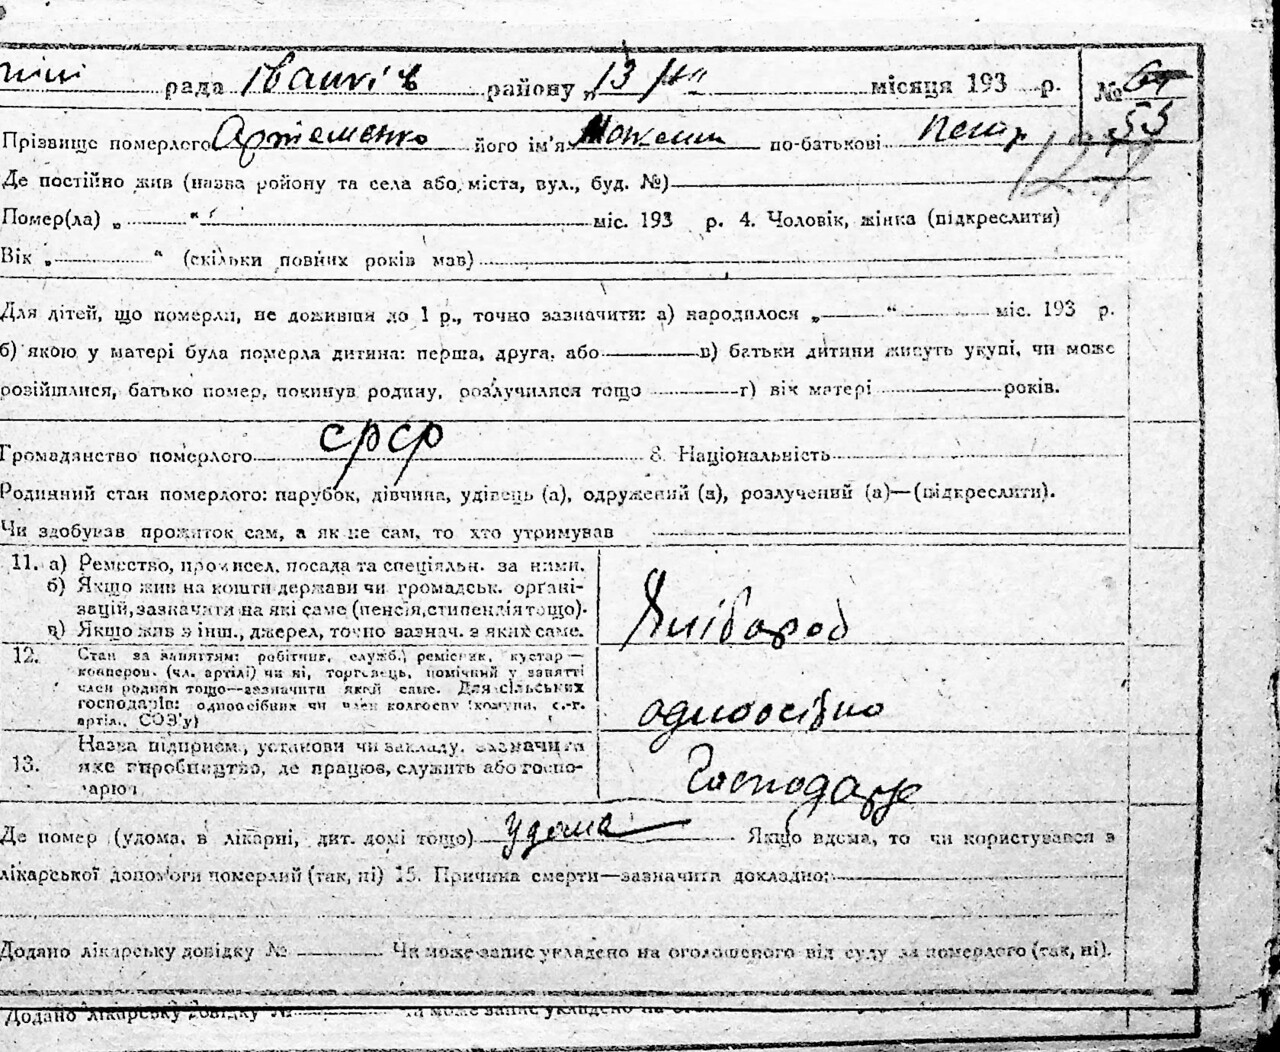 рада Іванків району „13 місяця 193 р. №
53
Прізвище померлого Артеменко його ім'я Максим по-батькові
127
Де постійно жив (назва ройону та села або міста, вул., буд. №)
Помер(ла) „ “ міс. 193 р. 4. Чоловік, жінка (підкреслити)
Вік „ “ (скільки повних років мав)
Для дітей, що померли, не доживши до 1 р., точно зазначити: а) народилося „ “ міс. 193 р.
б) якою у матері була померла дитина: перша, друга, або в) батьки дитини живуть укупі, чи може
розійшлися, батько помер, покинув родину, розлучилися тощо г) вік матері років.
Громадянство померлого СРСР 8. Національність
Родинний стан померлого: парубок, дівчина, удівець (а), одружений (а), розлучений (а)—(підкреслити).
Чи здобував прожиток сам, а як не сам, то хто утримував
11. а) Ремество, промисел, посада та спеціяльн. за ними.
б) Якщо жив на кошти держави чи громадськ. орґані-
зацій, зазначити на які саме (пенсія, стипендія тощо).
в) Якщо жив з інш., джерел, точно зазнач. з яких саме.
Хлібороб
12. Стан за заняттям: робітник, служб., ремісник, кустар—
коопером. (чл. артілі) чи ні, торговець, помічний у занятті
член родини тощо—зазначити який саме. Для сільських
господарів: одноосібних чи член колгоспу (комуни, с.-г.
артіл., СОЗ'у)
одноосібно
13. Назва підприєм., установи чи закладу, зазначити
яке виробництво, де працює, служить або госпо-
дарює
Господарує
Де помер (удома, в лікарні, дит. домі тощо) удома Якщо вдома, то чи користувався з
лікарської допомоги померлий (так, ні) 15. Причина смерти—зазначити докладно:
Додано лікарську довідку № Чи може запис укладено на оголошеного від суду за померлого (так, ні).
Додано лікарську довідку № Чи може запис укладено на